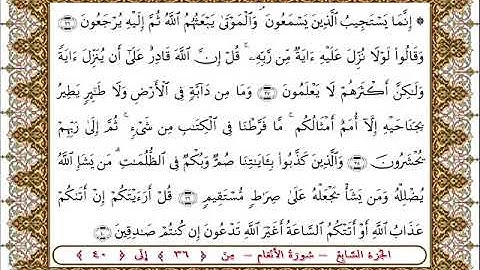 ۞ إِنَّمَا يَسْتَجِيبُ الَّذِينَ يَسْمَعُونَ ۘ وَالْمَوْتَىٰ يَبْعَثُهُمُ اللَّهُ ثُمَّ إِلَيْهِ يُرْجَعُونَ ﴿٣٦﴾
وَقَالُوا لَوْلَا نُزِّلَ عَلَيْهِ ءَايَةٌ مِّن رَّبِّهِۦ ۚ قُلْ إِنَّ اللَّهَ قَادِرٌ عَلَىٰ أَن يُنَزِّلَ ءَايَةً
وَلَـٰكِنَّ أَكْثَرَهُمْ لَا يَعْلَمُونَ ﴿٣٧﴾ وَمَا مِن دَابَّةٍ فِي الْأَرْضِ وَلَا طَـٰٓئِرٍ يَطِيرُ
بِجَنَاحَيْهِ إِلَّا أُمَمٌ أَمْثَالُكُم ۚ مَّا فَرَّطْنَا فِي الْكِتَـٰبِ مِن شَيْءٍ ۚ ثُمَّ إِلَىٰ رَبِّهِمْ
يُحْشَرُونَ ﴿٣٨﴾ وَالَّذِينَ كَذَّبُوا بِـَٔايَـٰتِنَا صُمٌّ وَبُكْمٌ فِي الظُّلُمَـٰتِ ۗ مَن يَشَإِ اللَّهُ
يُضْلِلْهُ وَمَن يَشَأْ يَجْعَلْهُ عَلَىٰ صِرَٰطٍ مُّسْتَقِيمٍ ﴿٣٩﴾ قُلْ أَرَءَيْتَكُمْ إِنْ أَتَىٰكُمْ
عَذَابُ اللَّهِ أَوْ أَتَتْكُمُ السَّاعَةُ أَغَيْرَ اللَّهِ تَدْعُونَ إِن كُنتُمْ صَـٰدِقِينَ ﴿٤٠﴾
الجزء السابع - سورة الأنعام - من ﴿٣٦﴾ إلى ﴿٤٠﴾